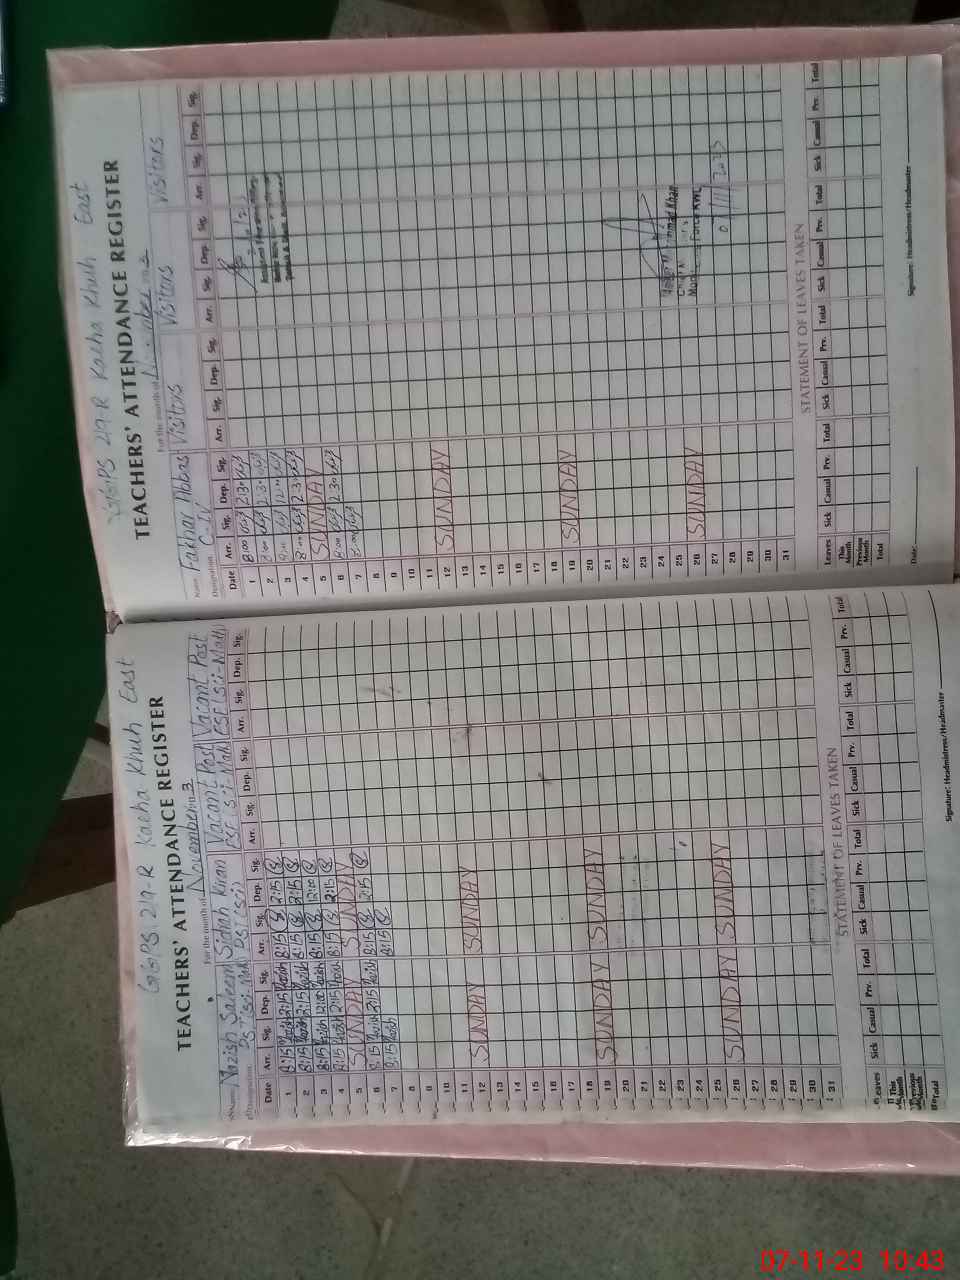 G.G.P.S 219-R Kacha Khuh East
TEACHERS' ATTENDANCE REGISTER
For the month of November 2023
Name Nazish Saleem Sidah Khan Vacant Post Vacant Post
Designation PST (Sci-Math) PST (Sci) ESE (Sci-Math) ESE (Sci-Math)
Date Arr. Sig. Dep. Sig. Arr. Sig. Dep. Sig. Arr. Sig. Dep. Sig. Arr. Sig. Dep. Sig.
1 8:15 2:15 8:15 2:15
2 8:15 2:15 8:15 2:15
3 8:15 12:00 8:15 12:00
4 8:15 2:15 8:15 2:15
5 SUNDAY SUNDAY
6 8:15 2:15 8:15 2:15
7 8:15 8:15
8
9
10
11
12 SUNDAY SUNDAY
13
14
15
16
17
18
19 SUNDAY SUNDAY
20
21
22
23
24
25
26 SUNDAY SUNDAY
27
28
29
30
31
STATEMENT OF LEAVES TAKEN
Leaves Sick Casual Prv. Total Sick Casual Prv. Total Sick Casual Prv. Total Sick Casual Prv. Total
This Month
Previous Month
Total
Signature: Headmistress/Headmaster
G.G.P.S 219-R Kacha Khuh East
TEACHERS' ATTENDANCE REGISTER
For the month of November 2023
Name Fakhar Abbas Visitors Visitors Visitors
Designation C-IV
Date Arr. Sig. Dep. Sig. Arr. Sig. Dep. Sig. Arr. Sig. Dep. Sig. Arr. Sig. Dep. Sig.
1 8:00 2:30
2 8:00 2:30
3 8:00 12:00
4 8:00 2:30
5 SUNDAY
6 8:00 2:30
7 8:00
8
9
10
11
12 SUNDAY
13
14
15
16
17
18
19 SUNDAY
20
21
22
23
24
25
26 SUNDAY
27
28
29
30
31
Khan
Force KWL
01/11/2023
STATEMENT OF LEAVES TAKEN
Leaves Sick Casual Prv. Total Sick Casual Prv. Total Sick Casual Prv. Total Sick Casual Prv. Total
This Month
Previous Month
Total
Date: Signature: Headmistress/Headmaster
07-11-23 10:43